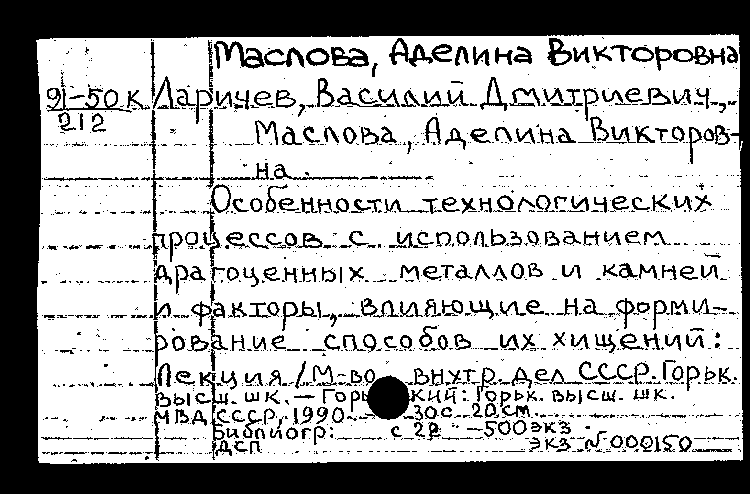 Маслова, Аделина Викторовна
91-50к Ларичев, Василий Дмитриевич,
212
Маслова, Аделина Викторов-
на.
Особенности технологических
процессов с использованием
драгоценных металлов и камней
и факторы, влияющие на форми-
рование способов их хищений:
Лекция / М-во внутр. дел СССР. Горьк.
высш. шк. - Горький: Горьк. высш. шк.
МВД СССР, 1990. - 30с. 20см.
Библиогр: с 28 -500экз.
ДСП экз №000150